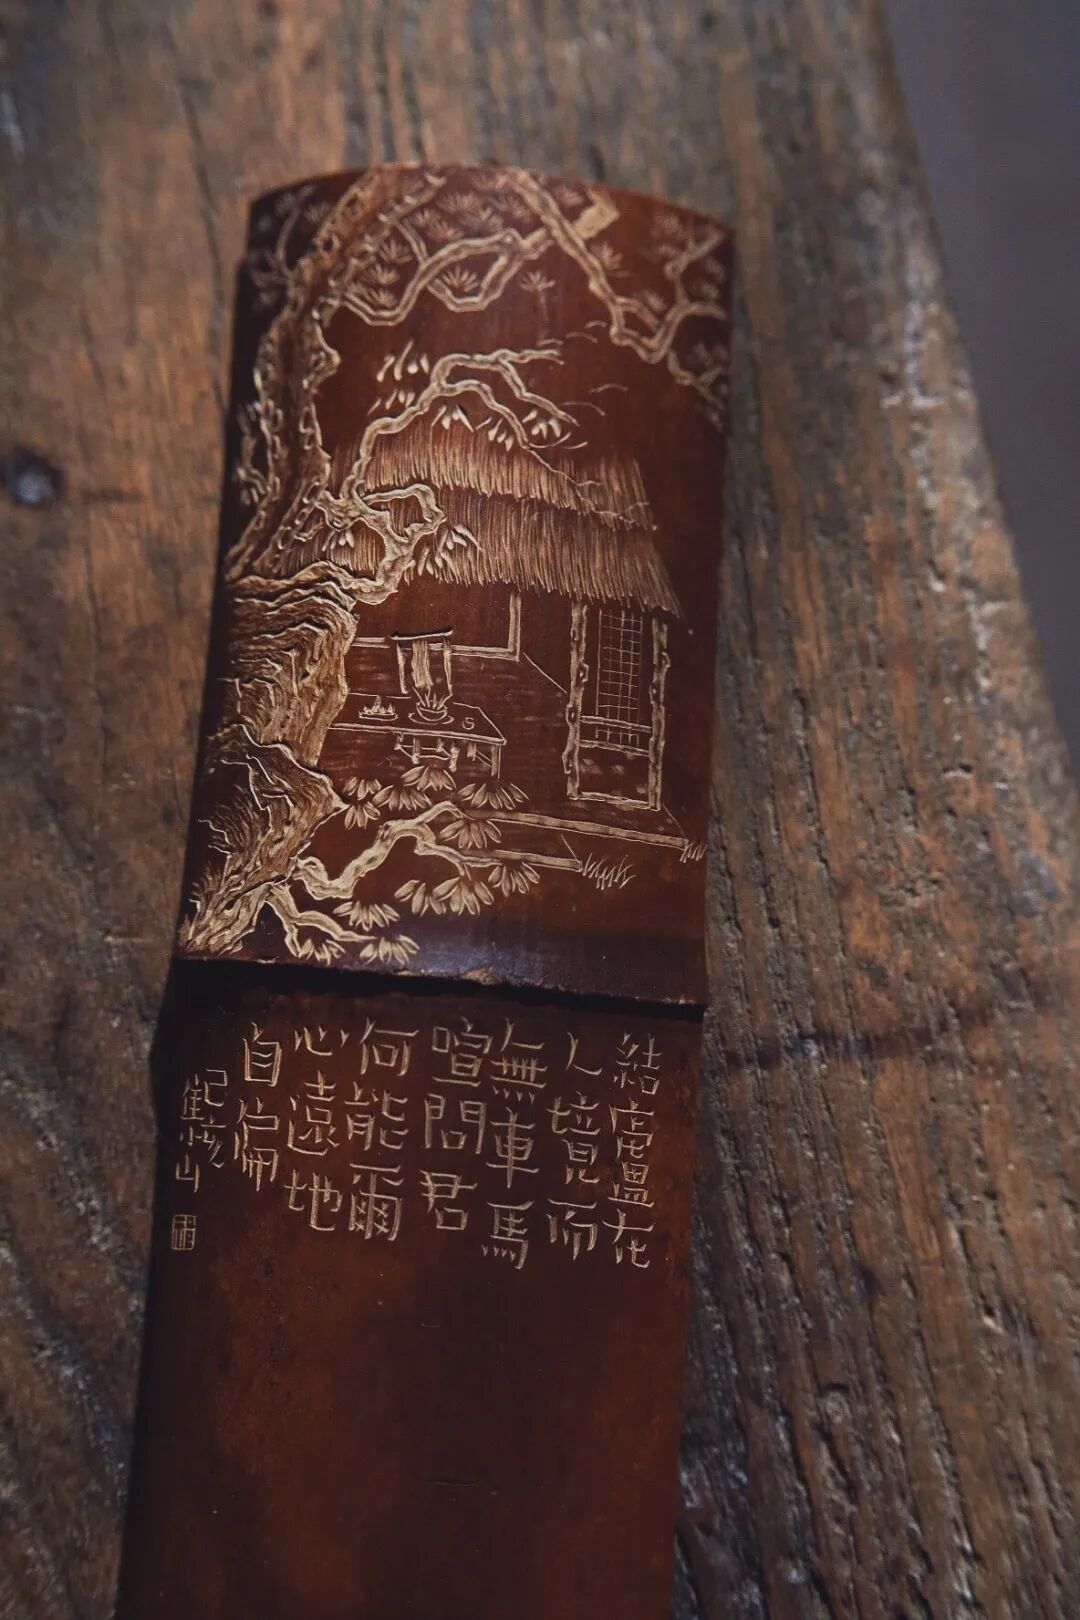 結廬在
人境而
無車馬
喧問君
何能爾
心遠地
自偏
己亥